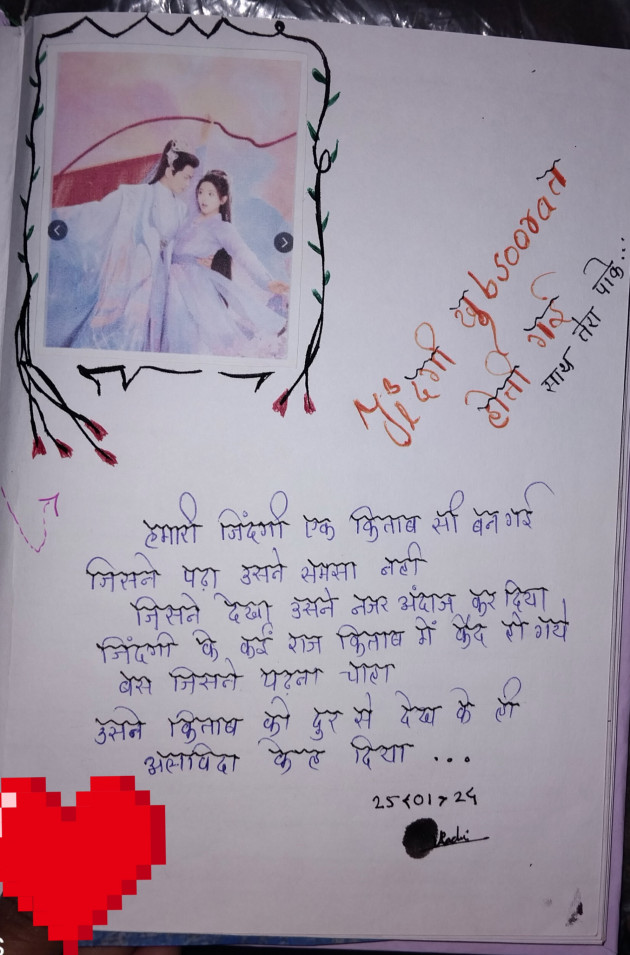 जिंदगी खुbsoorat
होती गई
साथ तेरा पाके...
हमारी जिंदगी एक किताब सी बन गई
जिसने पढ़ा उसने समसा नही
जिसने देखा उसने नजर अंदाज कर दिया
जिंदगी के कई राज किताब में कैद हो गये
बस जिसने पढ़ना चाहा
उसने किताब को दुर से देख के ही
अलविदा केह दिया ...
25<01>24